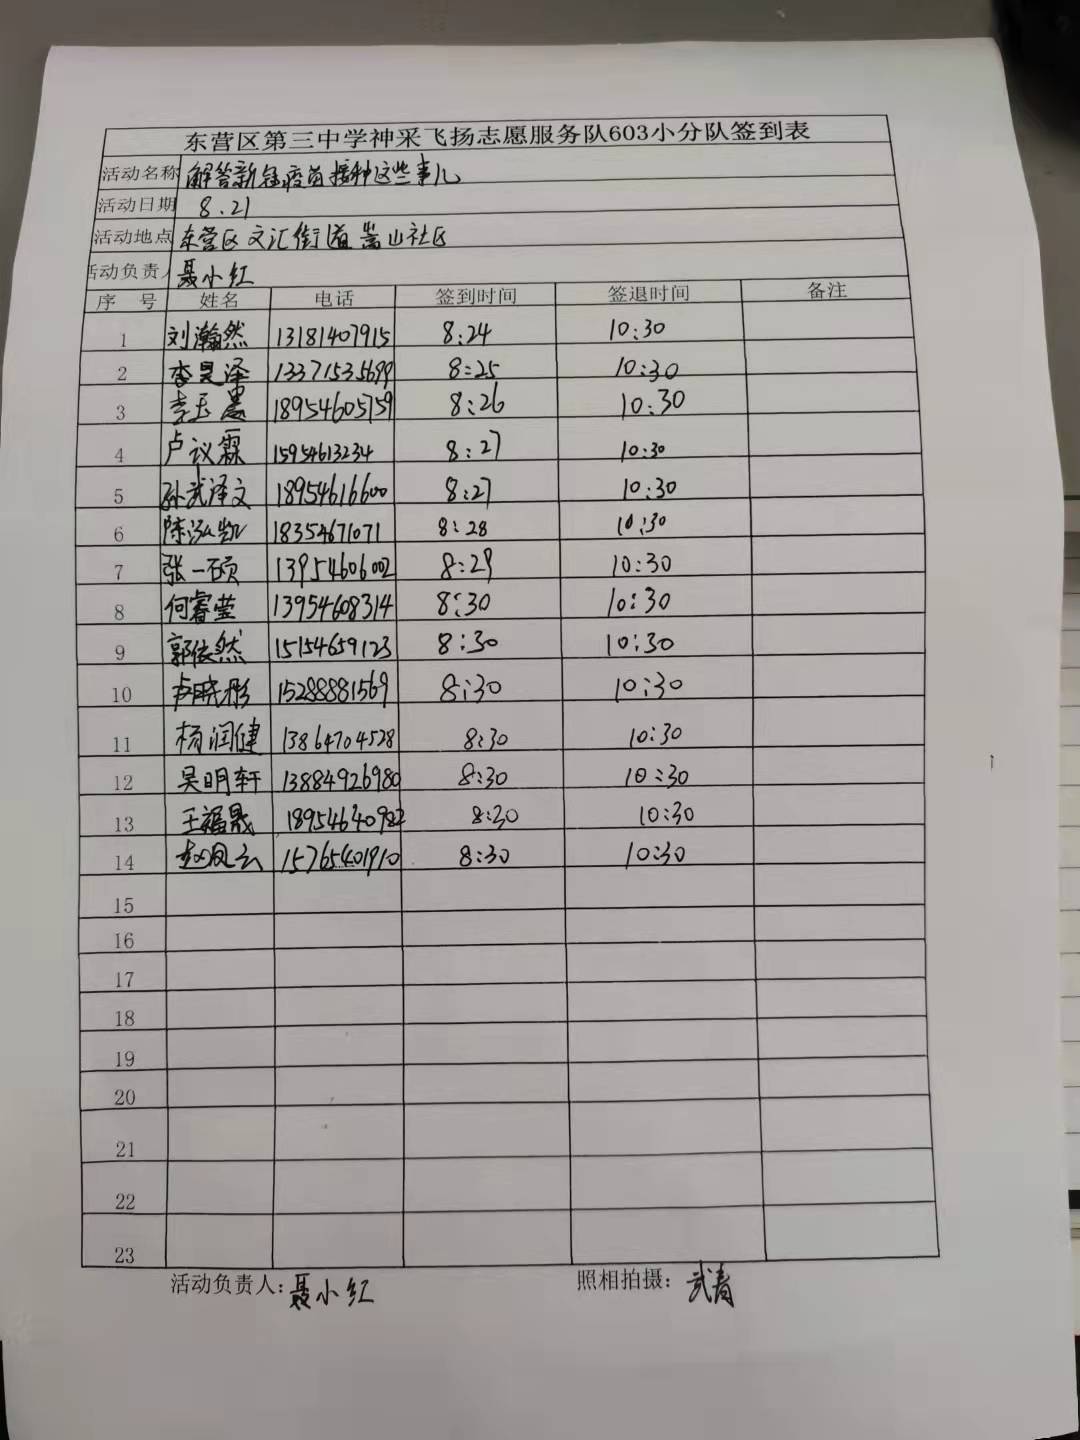 东营区第三中学神采飞扬志愿服务队603小分队签到表
活动名称 解答新冠疫苗接种这些事儿
活动日期 8.21
活动地点 东营区文汇街道嵩山社区
活动负责人 聂小红
序号 姓名 电话 签到时间 签退时间 备注
1 刘瀚然 13181407915 8:24 10:30
2 李昊泽 13371535699 8:25 10:30
3 李玉 18954605759 8:26 10:30
4 卢议霖 15954613234 8:27 10:30
5 孙武泽文 18954616600 8:27 10:30
6 陈泓凯 18354671071 8:28 10:30
7 张一硕 13954606002 8:29 10:30
8 何睿莹 13954608314 8:30 10:30
9 郭依然 15154659123 8:30 10:30
10 卢晓彤 15288881569 8:30 10:30
11 杨润健 13864704528 8:30 10:30
12 吴明轩 13884926980 8:30 10:30
13 王福晟 18954640982 8:30 10:30
14 赵凤云 15765401910 8:30 10:30
15
16
17
18
19
20
21
22
23
活动负责人：聂小红 照相拍摄：武春